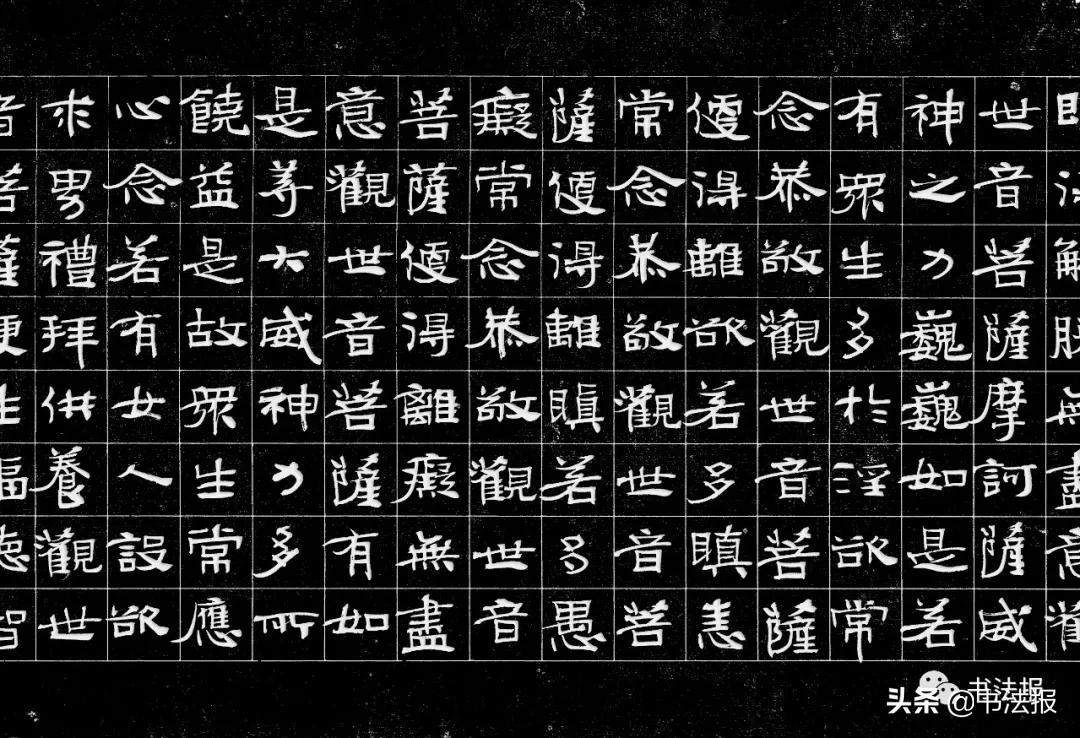 即得解脫無盡意觀
世音菩薩摩訶薩威
神之力巍巍如是若
有眾生多於淫欲常
念恭敬觀世音菩薩
便得離欲若多瞋恚
常念恭敬觀世音菩
薩便得離瞋若多愚
癡常念恭敬觀世音
菩薩便得離癡無盡
意觀世音菩薩有如
是等大威神力多所
饒益是故眾生常應
心念若有女人設欲
求男禮拜供養觀世
音菩薩便生福德智
书法报
头条@书法报